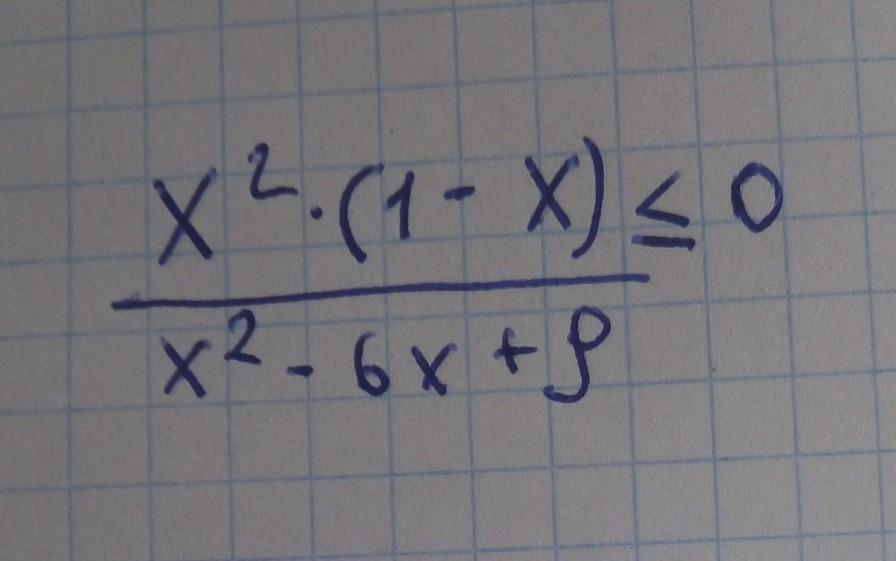 x²·(1-x) ≤ 0
x²-6x+9